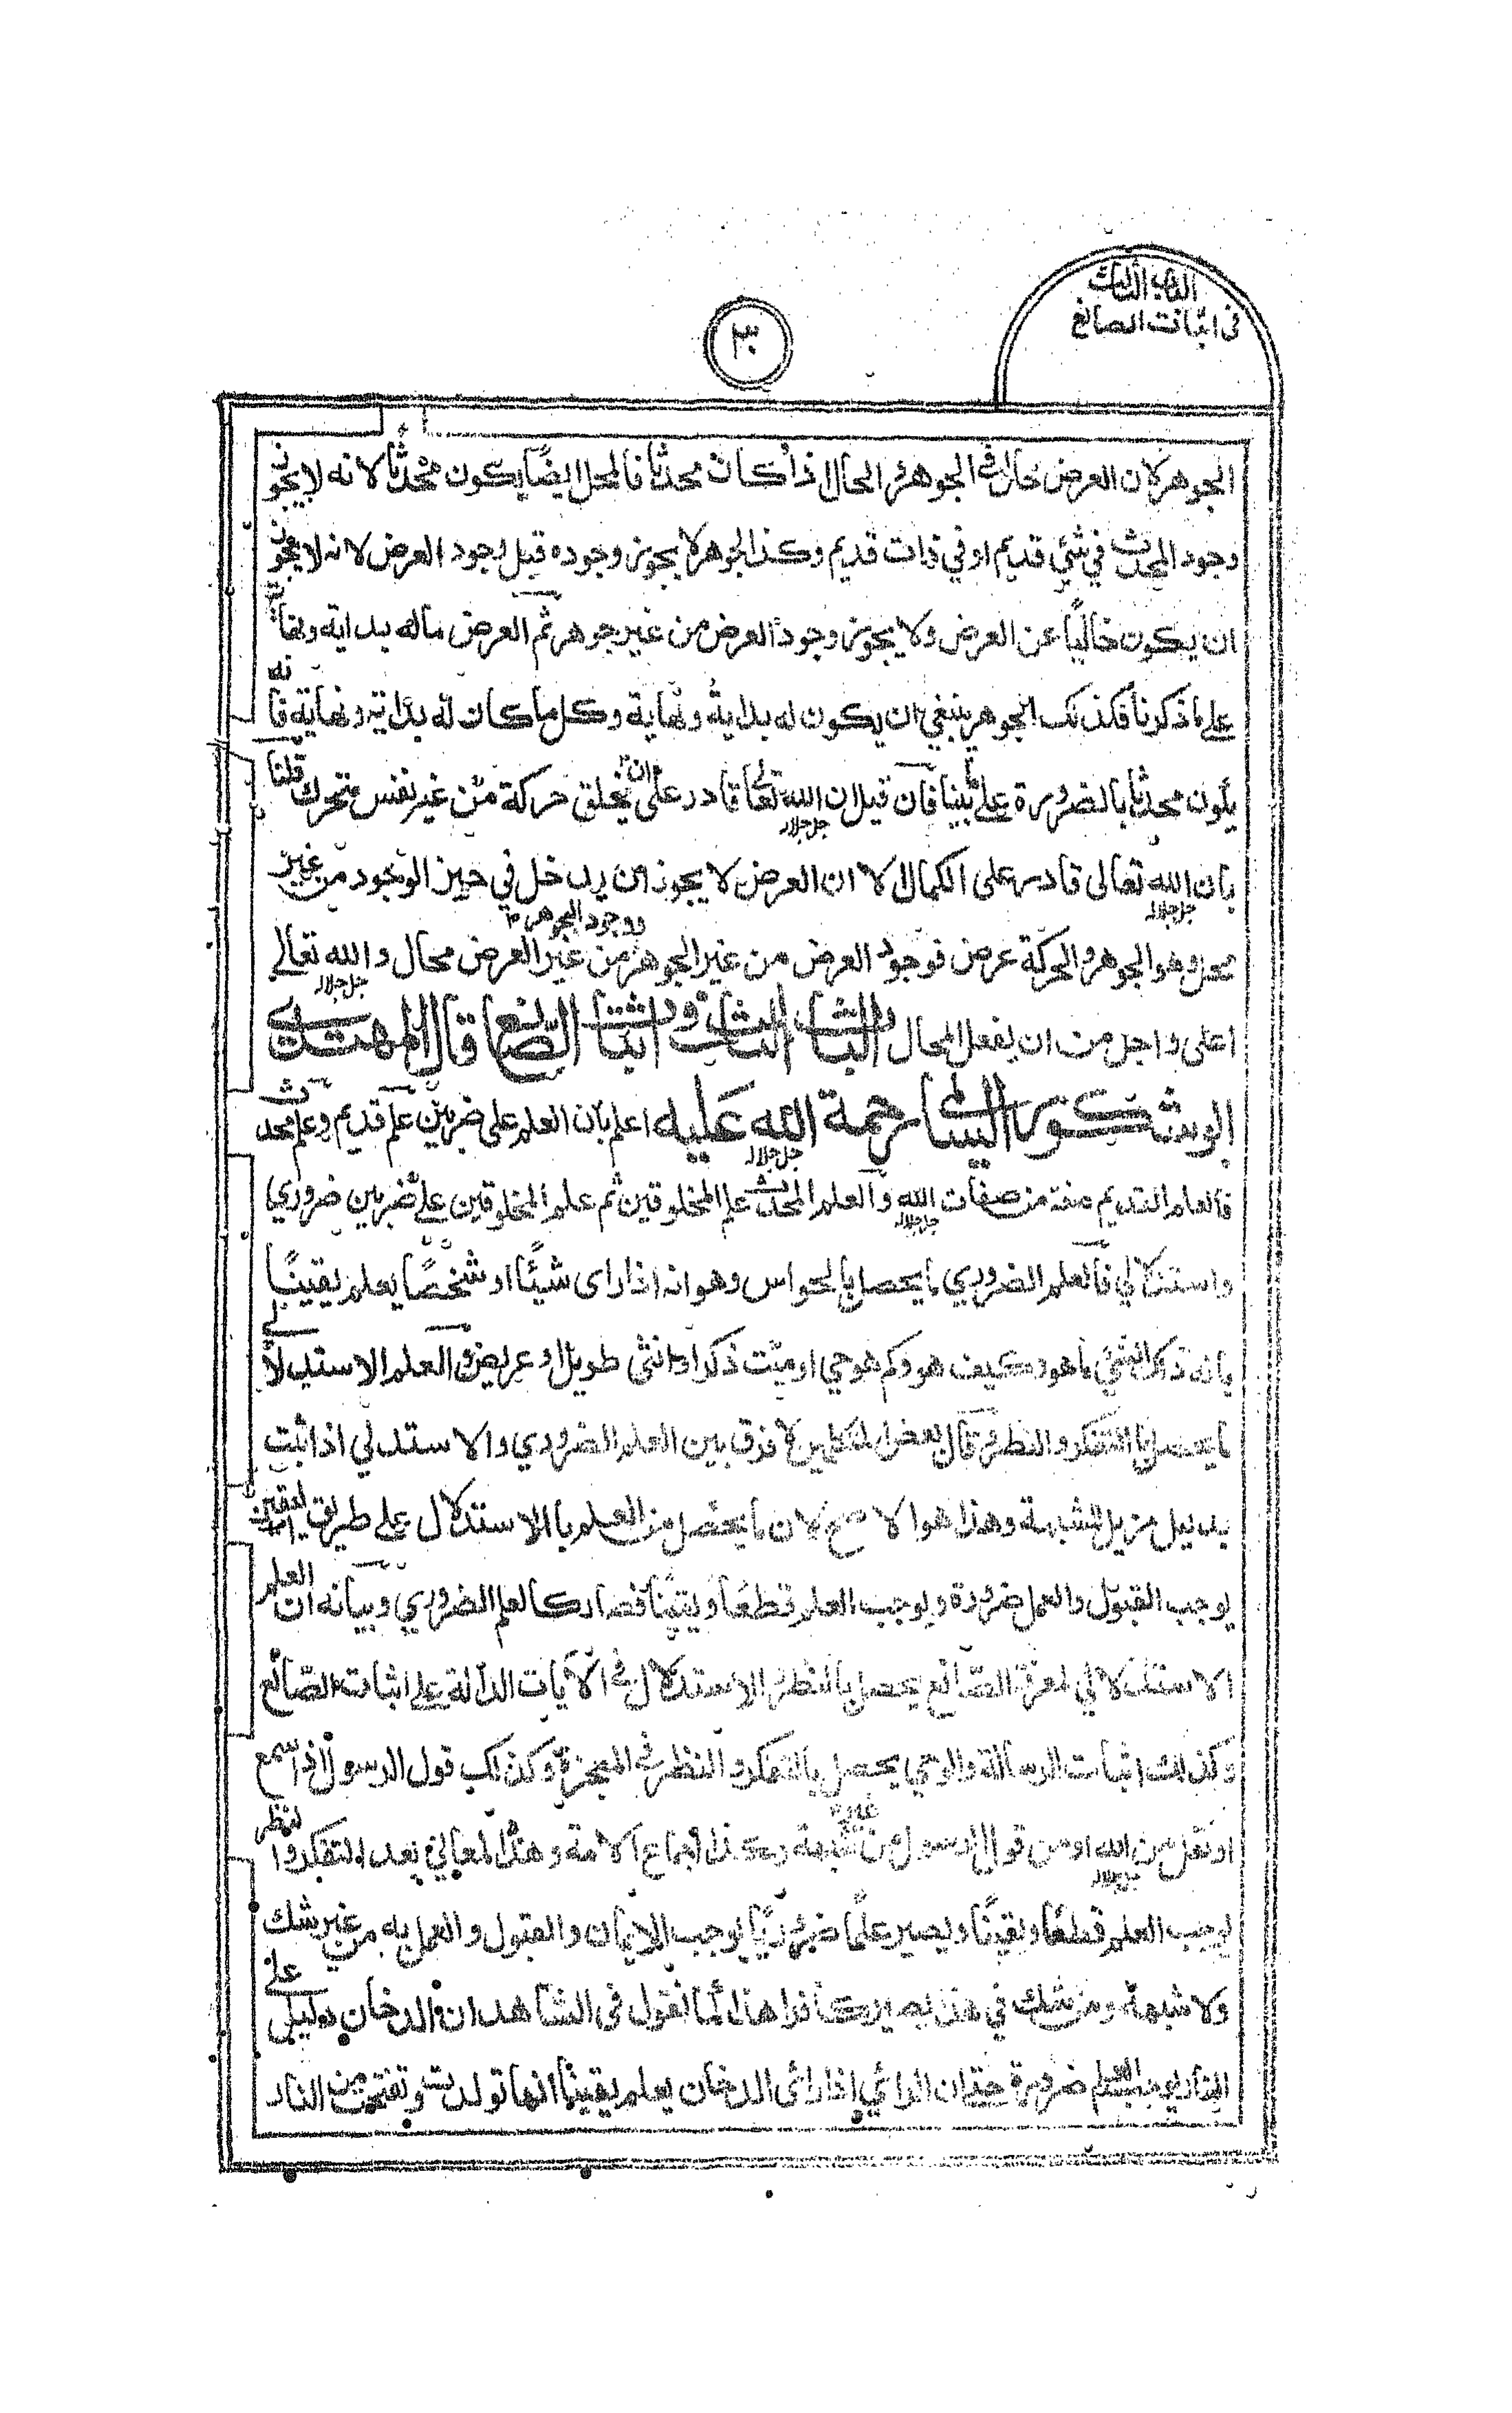 الباب الثالث
في اثبات الصانع
٣٠
الجوهر لان العرض حال في الجوهر والحال اذا كان محدثا فالمحل ايضًا يكون محدثًا لانه لا يجوز
وجود المحدث في شئ قديم او في ذات قديم وكذا الجوهر لا يجوز وجوده قبل وجود العرض لانه لا يجوز
ان يكون خاليًا عن العرض ولا يجوز وجود العرض من غير جوهر ثم العرض ماله بداية ونهاية
على ما ذكرنا فكذلك الجوهر ينبغي ان يكون له بداية ونهاية وكل ما كان له بداية ونهاية فانه
يكون محدثا بالضرورة على ما بينا فان قيل ان الله تعالى قادر على ان يخلق حركة من غير نفس متحرك قلنا
جل جلاله
بان الله تعالى قادر على الكمال الا ان العرض لا يجوز ان يدخل في حيز الوجود من غير
جل جلاله
محل وهو الجوهر والحركة عرض فوجود العرض من غير الجوهر ووجود الجوهر من غير العرض محال والله تعالى
جل جلاله
اعلى واجل من ان يفعل المحال الباب الثالث في اثبات الصانع قال المهتدى
ابو شكور السالمي رحمة الله عليه اعلم بان العلم على ضربين علم قديم وعلم محدث
جل جلاله
فالعلم القديم صفة من صفات الله والعلم المحدث علم المخلوقين ثم علم المخلوقين على ضربين ضروري
جل جلاله
واستدلالي فالعلم الضروري ما يحصل بالحواس وهو انه اذا راى شيئًا او شخصًا يعلم يقينًا
بانه ذاك الشئ ما هو وكيف هو وكم هو حي او ميت ذكر او انثى طويل او عريض والعلم الاستدلالي
ما يحصل بالتفكر والنظر وقال بعض المتكلمين لا فرق بين العلم الضروري والاستدلي اذا ثبت
بدليل مزيل الشبهة وهذا هو الاصح لان ما يحصل من العلم بالاستدلال على طريق اليقين
يوجب القبول والعمل ضرورة ويوجب العلم قطعًا ويقينًا فصار كالعلم الضروري وبيانه ان العلم
الاستدلالي لمعرفة الصانع يحصل بالنظر والاستدلال في الآيات الدالة على اثبات الصانع
وكذلك اثبات الرسالة والوحي يحصل بالتفكر والنظر في المعجزة وكذلك قول الرسول اذا سمع
او نقل من الله او من قول الرسول من غير شبهة وكذا اجماع الامة وهذا المعاني بعد التفكر والنظر
جل جلاله
يوجب العلم قطعًا ويقينًا ويصير علمًا ضروريًا يوجب الايمان والقبول والعمل به من غير شك
ولا شبهة ومن شك في هذا يصير كافرا هذا كما نقول في الشاهد ان الدخان دليل على
النار يوجب العلم ضرورة حتى ان الرائي اذا راى الدخان يعلم يقينًا انها تولدت من النار